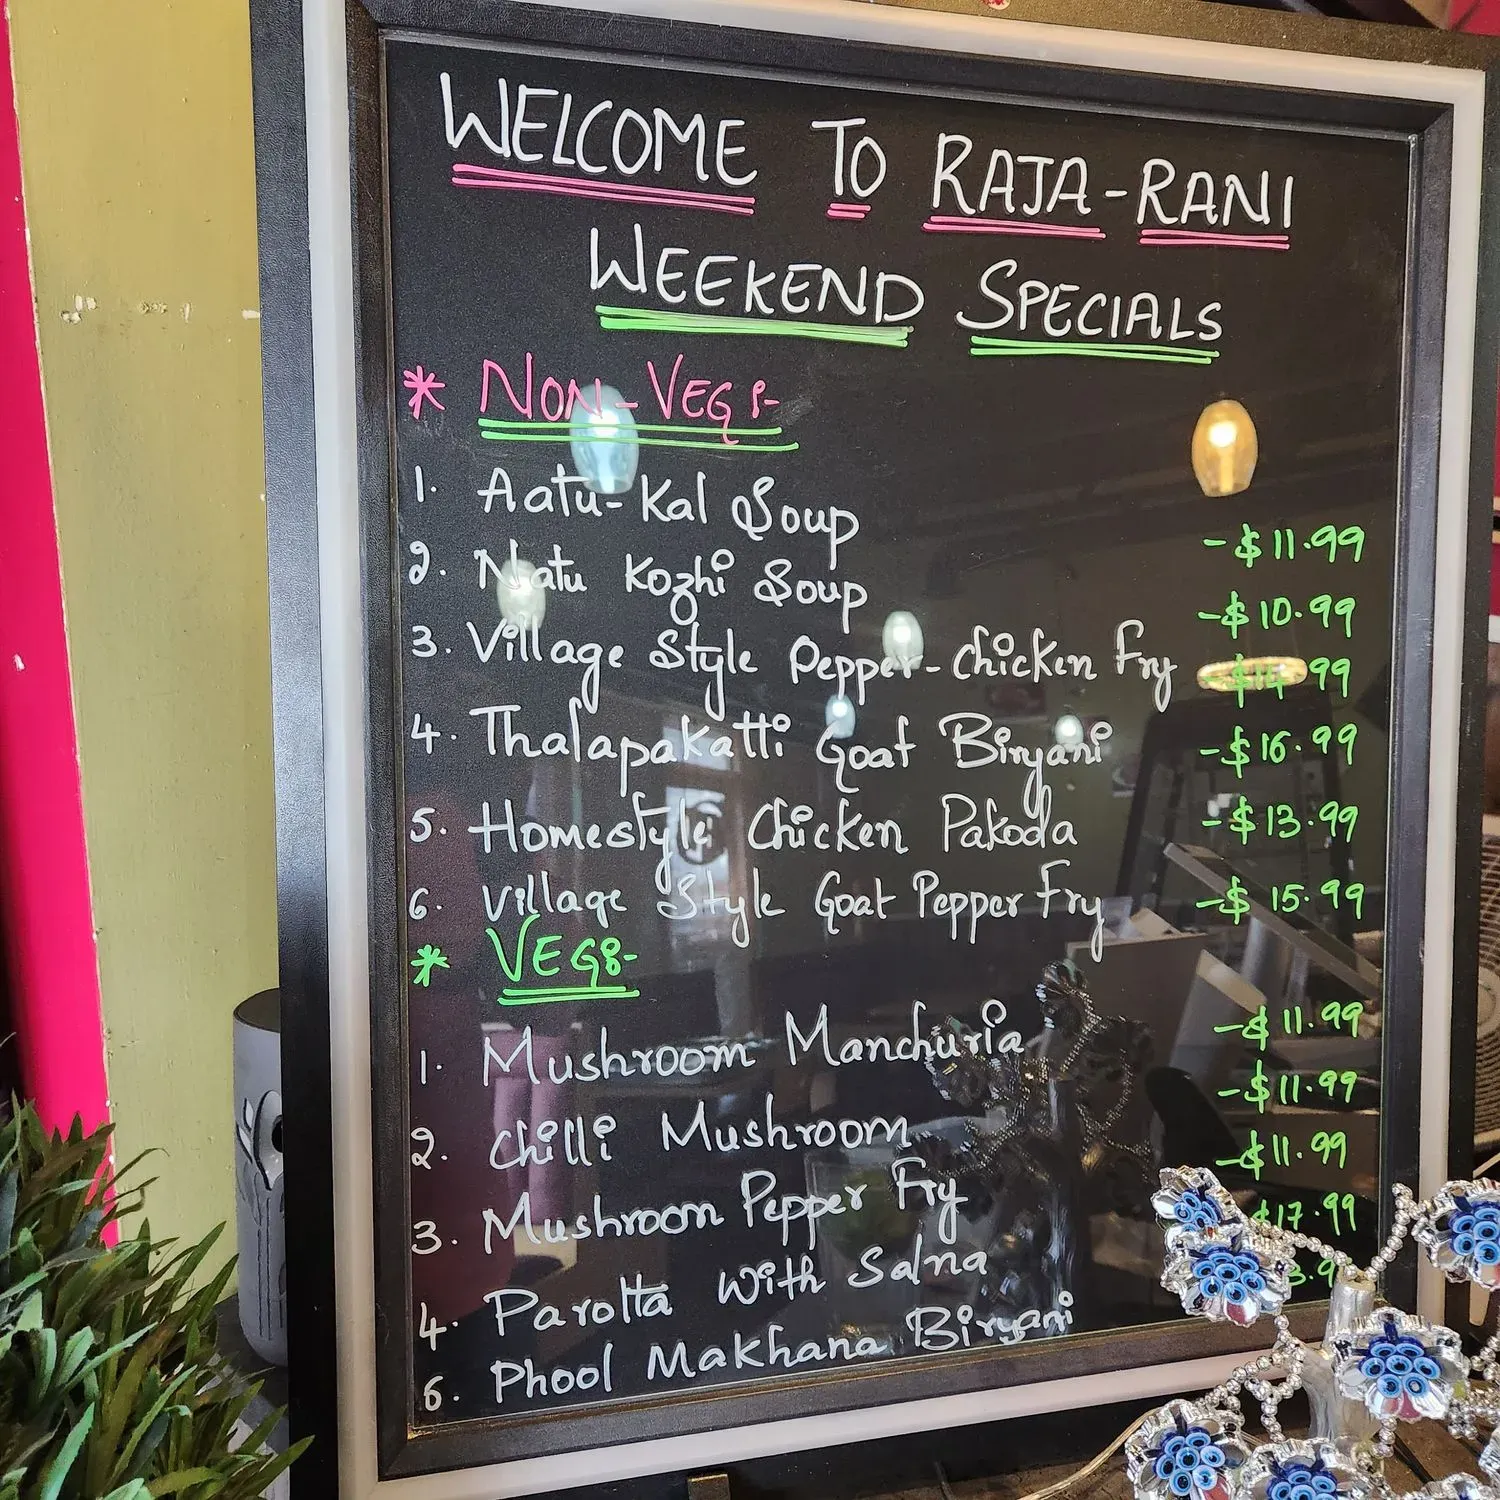 WELCOME TO RAJA-RANI
WEEKEND SPECIALS
* NON-VEG:-
1. Aatu-Kal Soup - $11.99
2. Natu Kozhi Soup - $10.99
3. Village Style Pepper-Chicken Fry - $14.99
4. Thalapakatti Goat Biryani - $16.99
5. Homestyle Chicken Pakoda - $13.99
6. Village Style Goat Pepper Fry - $15.99
* VEG:-
1. Mushroom Manchuria - $11.99
2. Chilli Mushroom - $11.99
3. Mushroom Pepper Fry - $11.99
4. Parotta With Salna $17.99
6. Phool Makhana Biryani